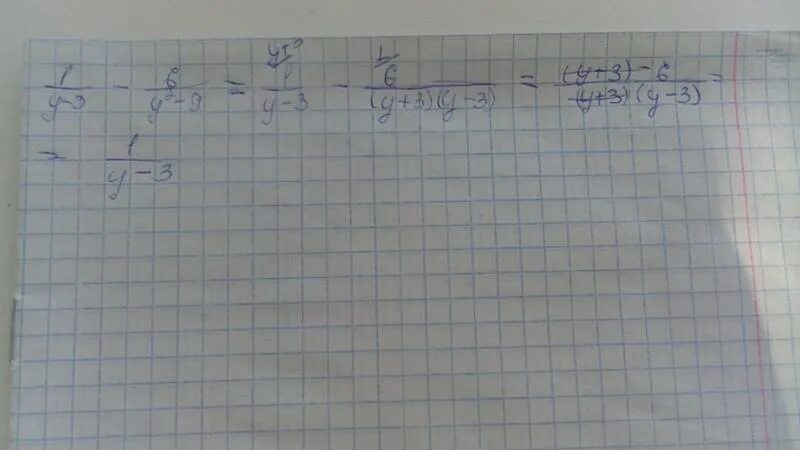 1/(y-3) - 6/(y²-9) = 1/(y-3) - 6/((y+3)(y-3)) = ((y+3)-6)/((y+3)(y-3)) =
= 1/(y-3)